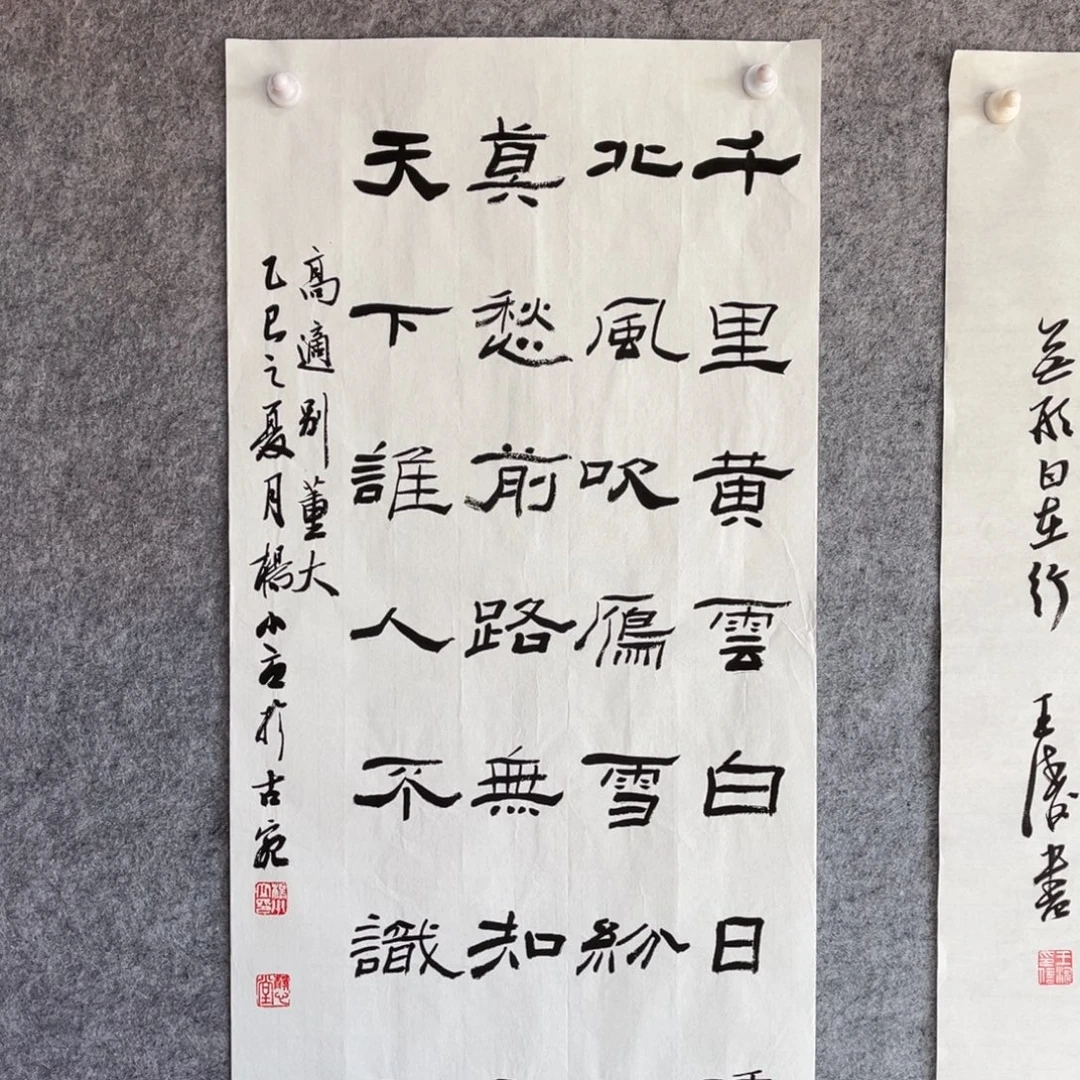 千里黄雲白日
北風吹鴈雪紛
真愁前路無知
天下誰人不識
高適别董大
乙巳之夏月楊小於古宛
日在行
王書